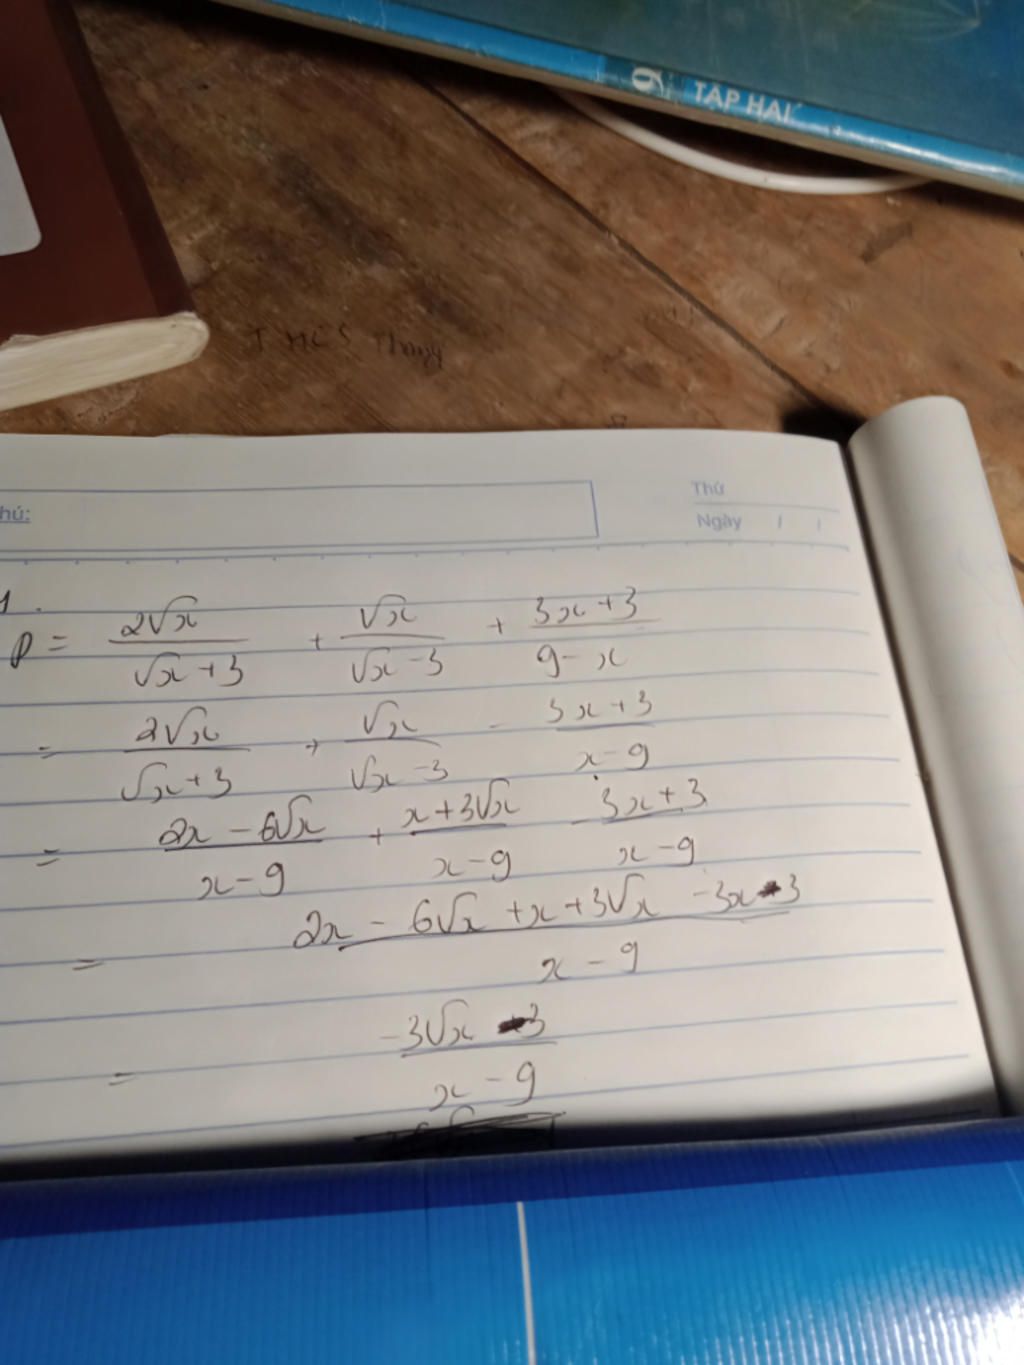 9 TẬP HAI
T HCS Thang
hú:
Thứ
Ngày / /
1.
P = 2√x / (√x + 3) + √x / (√x - 3) + (3x + 3) / (9 - x)
= 2√x / (√x + 3) + √x / (√x - 3) - (3x + 3) / (x - 9)
= (2x - 6√x) / (x - 9) + (x + 3√x) / (x - 9) - (3x + 3) / (x - 9)
= (2x - 6√x + x + 3√x - 3x - 3) / (x - 9)
= (-3√x - 3) / (x - 9)